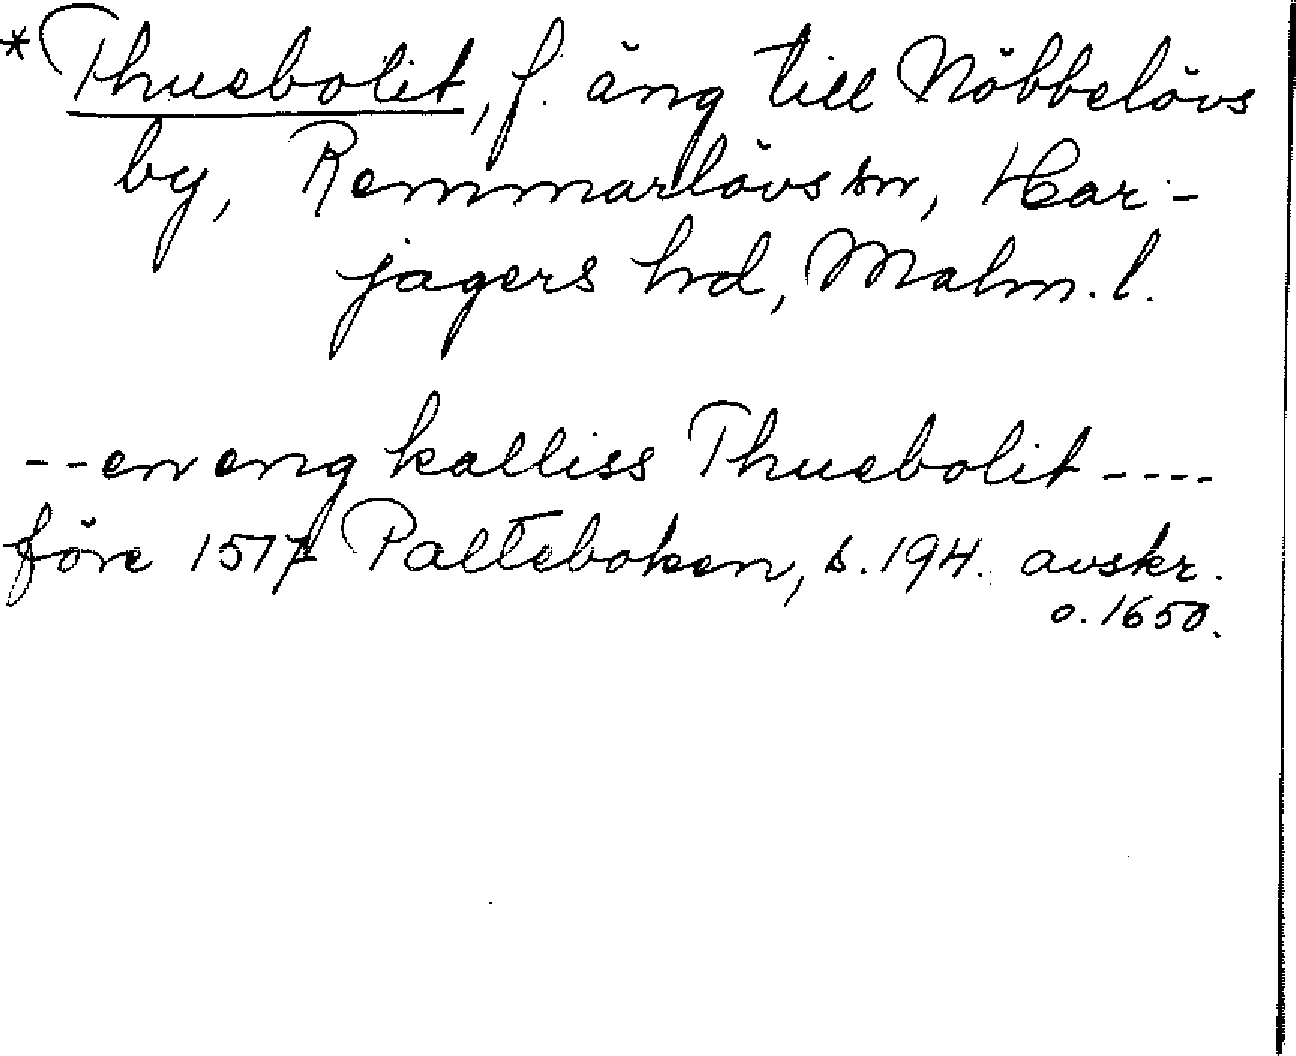 *Thuebolit, f. äng till Nöbbelövs
by, Remmarlövs sn, Har-
jagers hd, Malm. l.
--en eng kalliss Thuebolit----
före 1517 Palteboken, s. 194. avskr.
o. 1650.